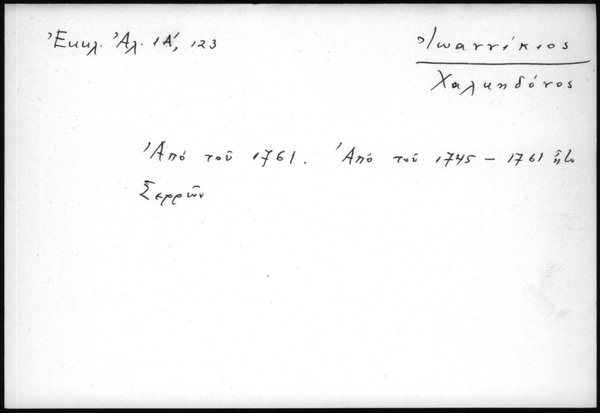 Ἐκκλ. Ἀλ. ΙΑ΄, 123
Ἰωαννίκιος
Χαλκηδόνος
Ἀπό τοῦ 1761. Ἀπό τοῦ 1745 – 1761 ἦτο
Σερρῶν